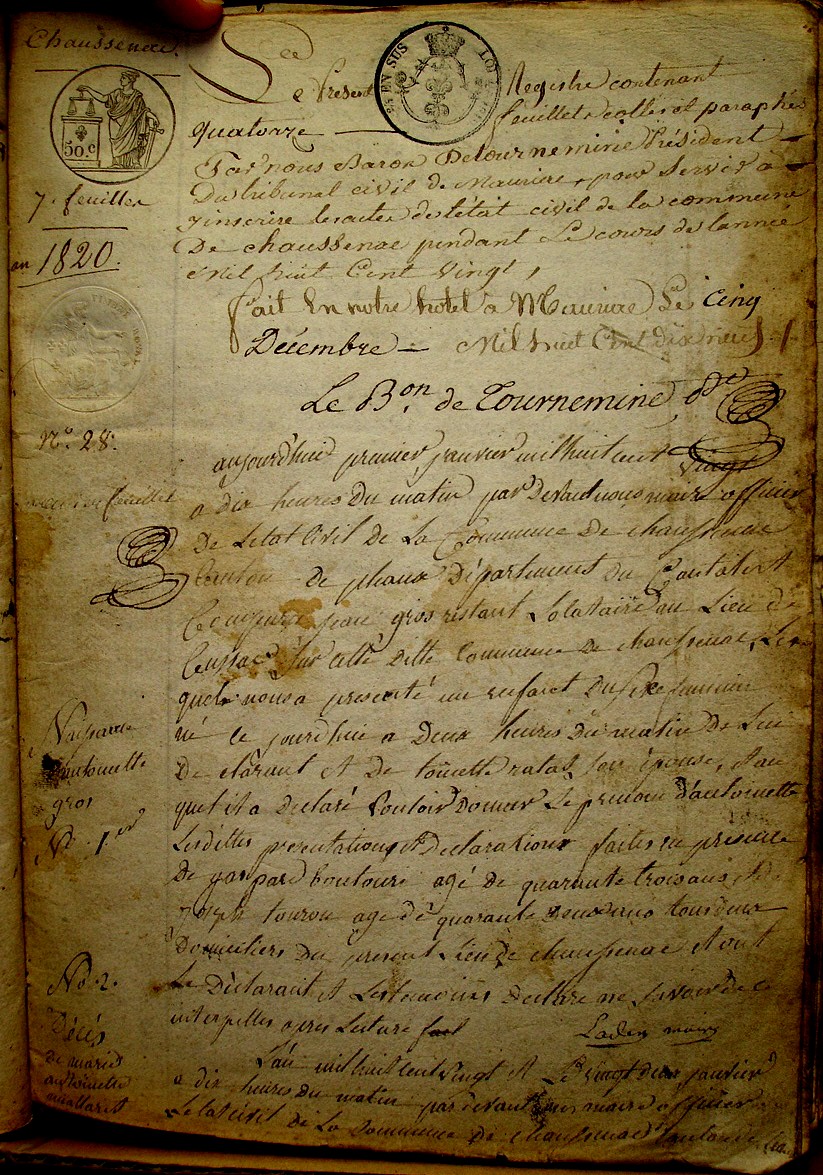 Chaussenac.
EN SUS
LOI
50.c
Le Present Registre contenant
quatorze feuillets collés et paraphés
Par nous Baron De tournemine Président
Du tribunal civil de Mauriac, pour servir à
y inscrire les actes de l'état civil de la commune
De chaussenac pendant Le cours de l'annee
Mil huit Cent Vingt,
fait En notre hotel a Mauriac Le Cinq
Décembre Mil huit Cent Dix neuf
Le Bon. de Tournemine
7. feuilles
an 1820.
No. 28.
feuillet
aujourdhui premier janvier mil huit cent Vingt
a dix heures du matin par Devant nous maire officier
De Letat Civil de La Commune De chaussenac
Canton de pleaux Département du Cantal Est
Comparu jean gros restant Locataire au Lieu de
Cussac Sur cette ditte Commune de chaussenac, Le
quel nous a presenté un enfant du sexe feminin
né ce jourdhui a Deux heures du matin De Lui
Declarant Et De toinette ratas son épouse, Et au
quel il a declaré Vouloir Donner Le prenom d'antoinette
Lesdittes presentations Et Declarations faites en presence
De gaspard boutouri agé de quarante trois ans Et de
joseph tourou agé de quarante Deux ans tous deux
Domiciliers du present Lieu de chaussenac Et ont
Le Déclarant Et Les temoins Declaré ne Savoir de ce
interpelles apres Lecture fait
maire
Naissance
antoinette
gros
No. 1er
No. 2.
Décés
de marie
antoinette
L'an mil huit cent vingt Et Le vingt deux janvier
a dix heures du matin par devant nous maire officier
De Letat Civil de La Commune de chaussenac Canton de